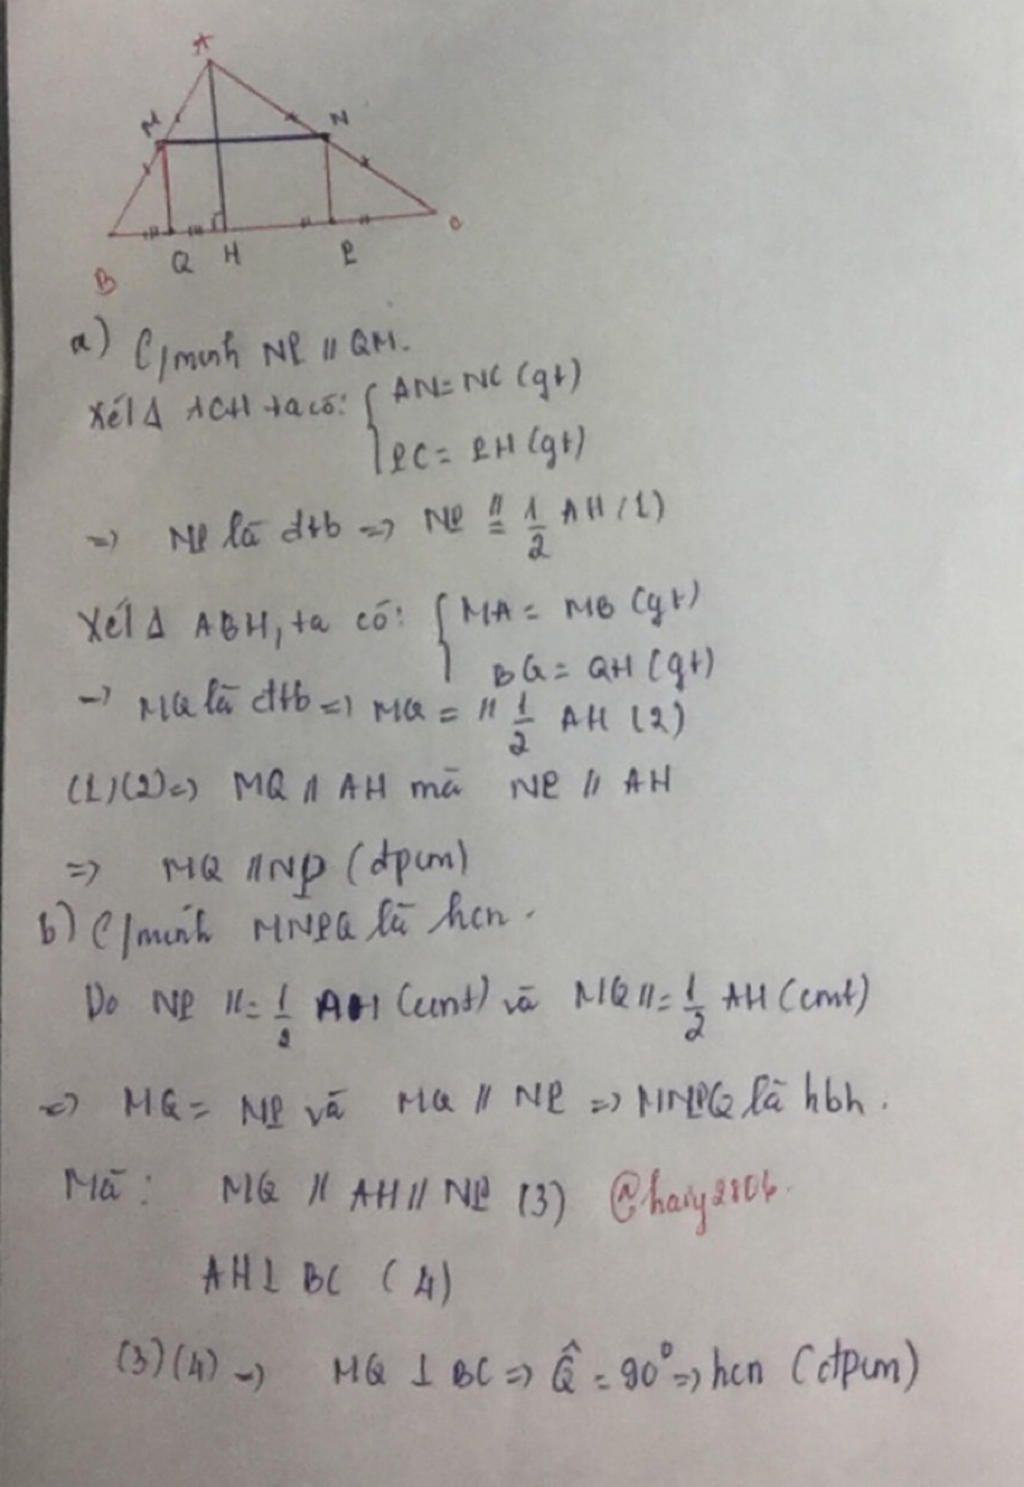 A
M
N
B
Q
H
P
C
a) C/minh NP // QM.
Xét Δ ACH ta có: { AN = NC (gt)
PC = PH (gt)
=> NP là đtb => NP //= 1/2 AH (1)
Xét Δ ABH, ta có: { MA = MB (gt)
BQ = QH (gt)
-> MQ là đtb => MQ = // 1/2 AH (2)
(1)(2) => MQ // AH mà NP // AH
=> MQ // NP (đpcm)
b) C/minh MNPQ là hcn.
Do NP //= 1/2 AH (cmt) và MQ //= 1/2 AH (cmt)
=> MQ = NP và MQ // NP => MNPQ là hbh.
Mà: MQ // AH // NP (3) @haiy2806.
AH ⊥ BC (4)
(3)(4) -> MQ ⊥ BC => Q̂ = 90° => hcn (đpcm)